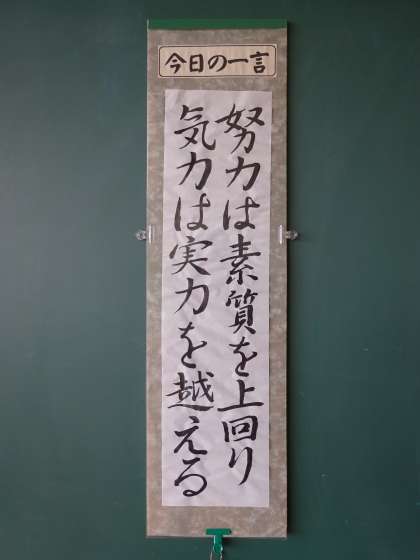 今日の一言
努力は素質を上回り
気力は実力を越える